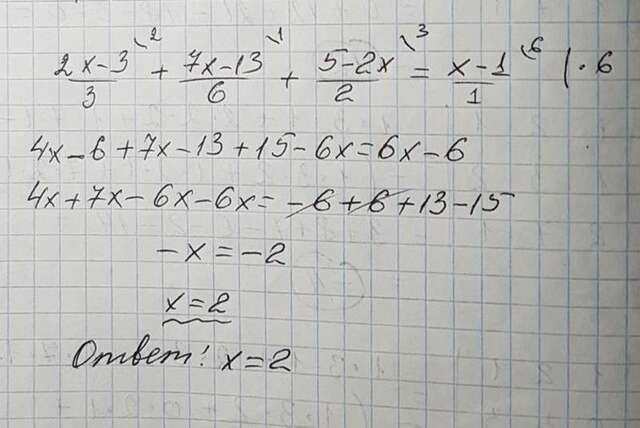 (2x-3)/3 + (7x-13)/6 + (5-2x)/2 = (x-1)/1 | · 6
4x-6+7x-13+15-6x=6x-6
4x+7x-6x-6x=-6+6+13-15
-x=-2
x=2
Ответ! x=2